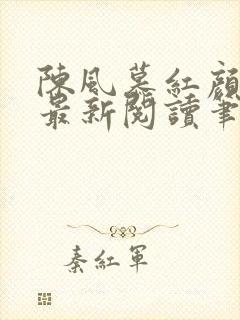 陳風慕紅顏
最新閱讀筆
秦紅軍